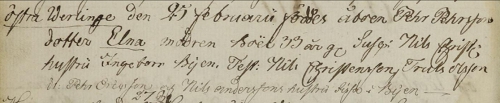 östra Werlinge den 25 februarii föddes åboen Pehr Pehrssons
dotter Elna modren Boel 33 år gl Susc. Nils Christ.
hustru Ingeborr Bijen, Test. Nils Christensson, Truls Olsson
N. Pehr Svensson och Nils Anderssons hustru i Bijen